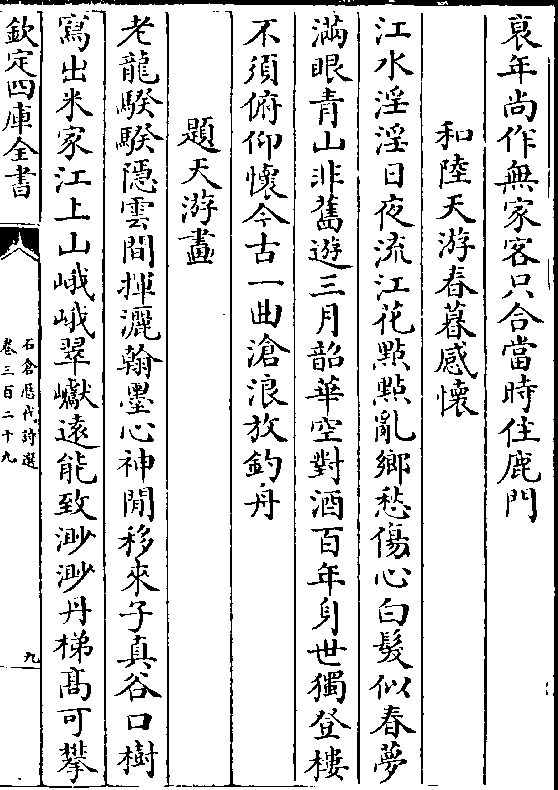 哀年尚作無家客只合當時住鹿門
和陸天游春暮感懷
江水淫淫日夜流江花點點亂鄉愁傷心白髮似春夢
滿眼青山非舊遊三月韶華空對酒百年身世獨登樓
不須俯仰懷今古一曲滄浪放釣舟
題天游畫
老龍騤騤隱雲間揮灑翰墨心神閒移來子真谷口樹
寫出米家江上山峨峨翠巘遠能致渺渺丹梯髙可攀
欽定四庫全書
石倉歷代詩選
卷三百二十九
九